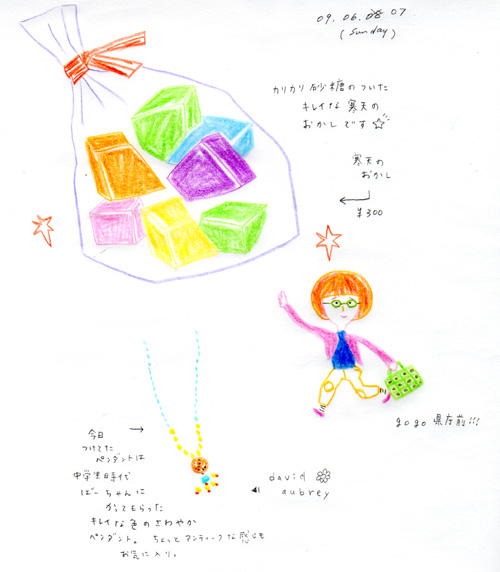 09. 06. 07
(Sunday)
カリカリ砂糖のついた
キレイな寒天の
おかしです☆
寒天の
おかし
¥300
gogo 県庁前!!!
今日
つけてた
ペンダントは
中学生時代
ばーちゃんに
かってもらった
キレイな色のさわやか
ペンダント。ちょっとアンティークな感じも
お気に入り。
david
aubrey